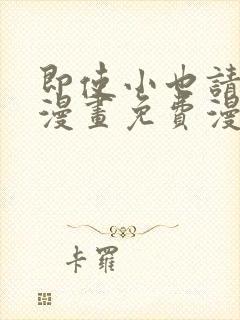 即使小也請
漫畫免費漫
卡羅